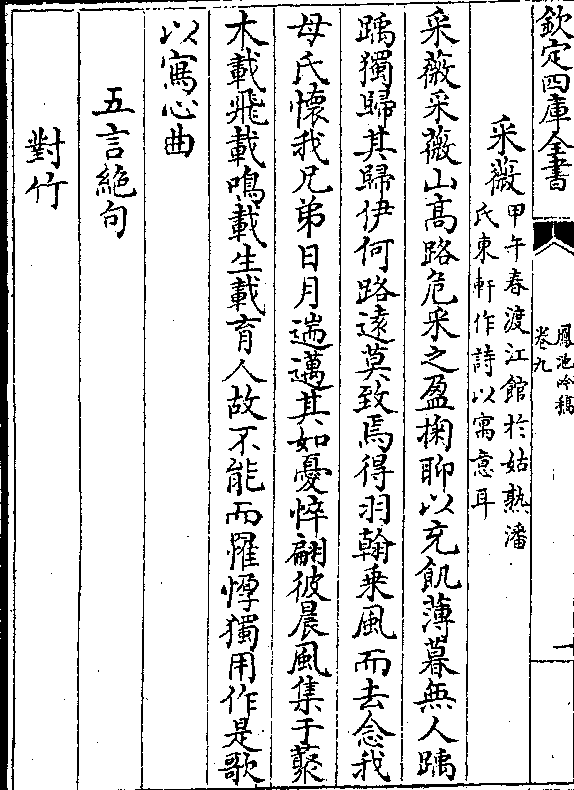 欽定四庫全書
鳳池吟稿
卷九
一
采薇甲午春渡江館於姑熟潘
氏東軒作詩以寓意耳
采薇采薇山髙路危采之盈掬聊以充飢薄暮無人踽
踽獨歸其歸伊何路遠莫致焉得羽翰乗風而去念我
母氏懷我兄弟日月遄邁其如憂悴翩彼晨風集于藂
木載飛載鳴載生載育人故不能而罹惸獨用作是歌
以寫心曲
五言絶句
對竹